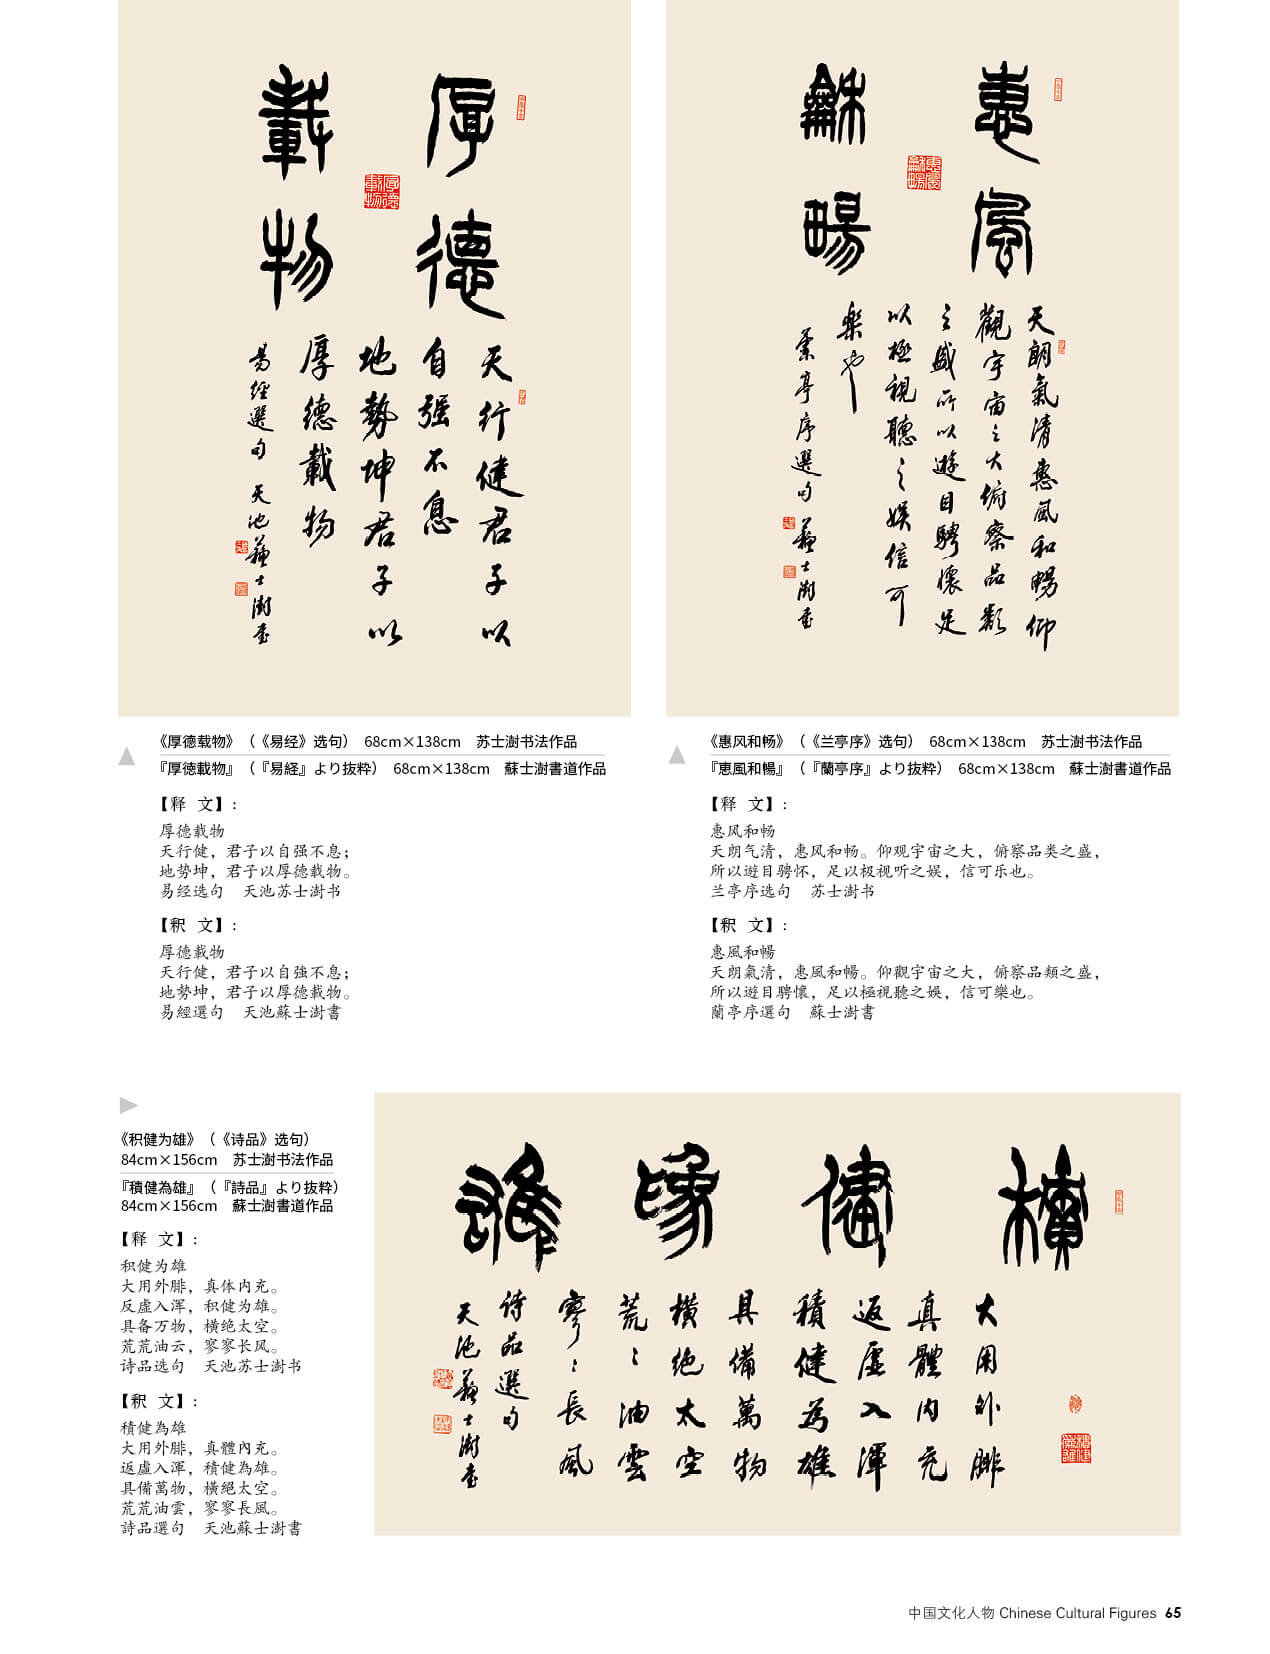 厚德
載物
天行健君子以
自强不息
地勢坤君子以
厚德載物
易經選句 天池蘇士澍書
惠風
龢暢
天朗氣清惠風和暢仰
觀宇宙之大俯察品類
之盛所以遊目騁懷足
以極視聽之娛信可
樂也
蘭亭序選句 蘇士澍書
《厚德载物》（《易经》选句） 68cm×138cm 苏士澍书法作品
『厚徳載物』（『易経』より抜粋） 68cm×138cm 蘇士澍書道作品
【释 文】：
厚德载物
天行健，君子以自强不息；
地势坤，君子以厚德载物。
易经选句 天池苏士澍书
【釈 文】：
厚德載物
天行健，君子以自強不息；
地勢坤，君子以厚德載物。
易經選句 天池蘇士澍書
《惠风和畅》（《兰亭序》选句） 68cm×138cm 苏士澍书法作品
『恵風和暢』（『蘭亭序』より抜粋） 68cm×138cm 蘇士澍書道作品
【释 文】：
惠风和畅
天朗气清，惠风和畅。仰观宇宙之大，俯察品类之盛，
所以遊目骋怀，足以极视听之娱，信可乐也。
兰亭序选句 苏士澍书
【釈 文】：
惠風和暢
天朗氣清，惠風和暢。仰觀宇宙之大，俯察品類之盛，
所以遊目聘懷，足以極視聽之娛，信可樂也。
蘭亭序選句 蘇士澍書
《积健为雄》（《诗品》选句）
84cm×156cm 苏士澍书法作品
『積健為雄』（『詩品』より抜粋）
84cm×156cm 蘇士澍書道作品
【释 文】：
积健为雄
大用外腓，真体内充。
反虚入浑，积健为雄。
具备万物，横绝太空。
荒荒油云，寥寥长风。
诗品选句 天池苏士澍书
【釈 文】：
積健為雄
大用外腓，真體內充。
返虛入渾，積健為雄。
具備萬物，橫絕太空。
荒荒油雲，寥寥長風。
詩品選句 天池蘇士澍書
積健為雄
大用外腓
真體内充
返虛入渾
積健為雄
具備萬物
橫絕太空
荒〻油雲
寥〻長風
诗品選句
天池蘇士澍書
中国文化人物 Chinese Cultural Figures 65